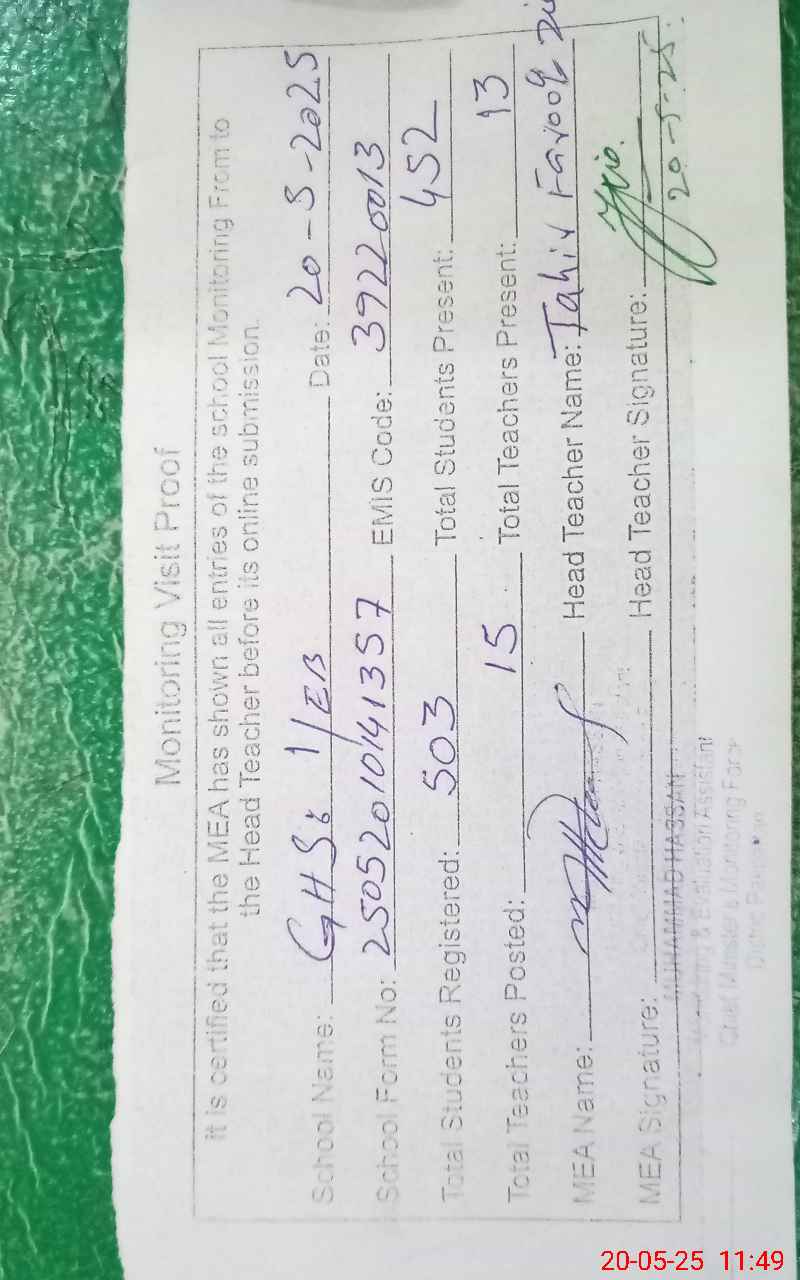 Monitoring Visit Proof
It is certified that the MEA has shown all entries of the school Monitoring From to
the Head Teacher before its online submission.
School Name: GHSs 1/EB Date: 20-5-2025
School Form No: 25052010141357 EMIS Code: 39220013
Total Students Registered: 503 Total Students Present: 452
Total Teachers Posted: 15 Total Teachers Present: 13
MEA Name: Head Teacher Name: Tahir Farooq
MEA Signature: Head Teacher Signature:
20-5-25
MUHAMMAD HASSAN
Monitoring & Evaluation Assistant
Chief Minister's Monitoring Force
District
20-05-25 11:49